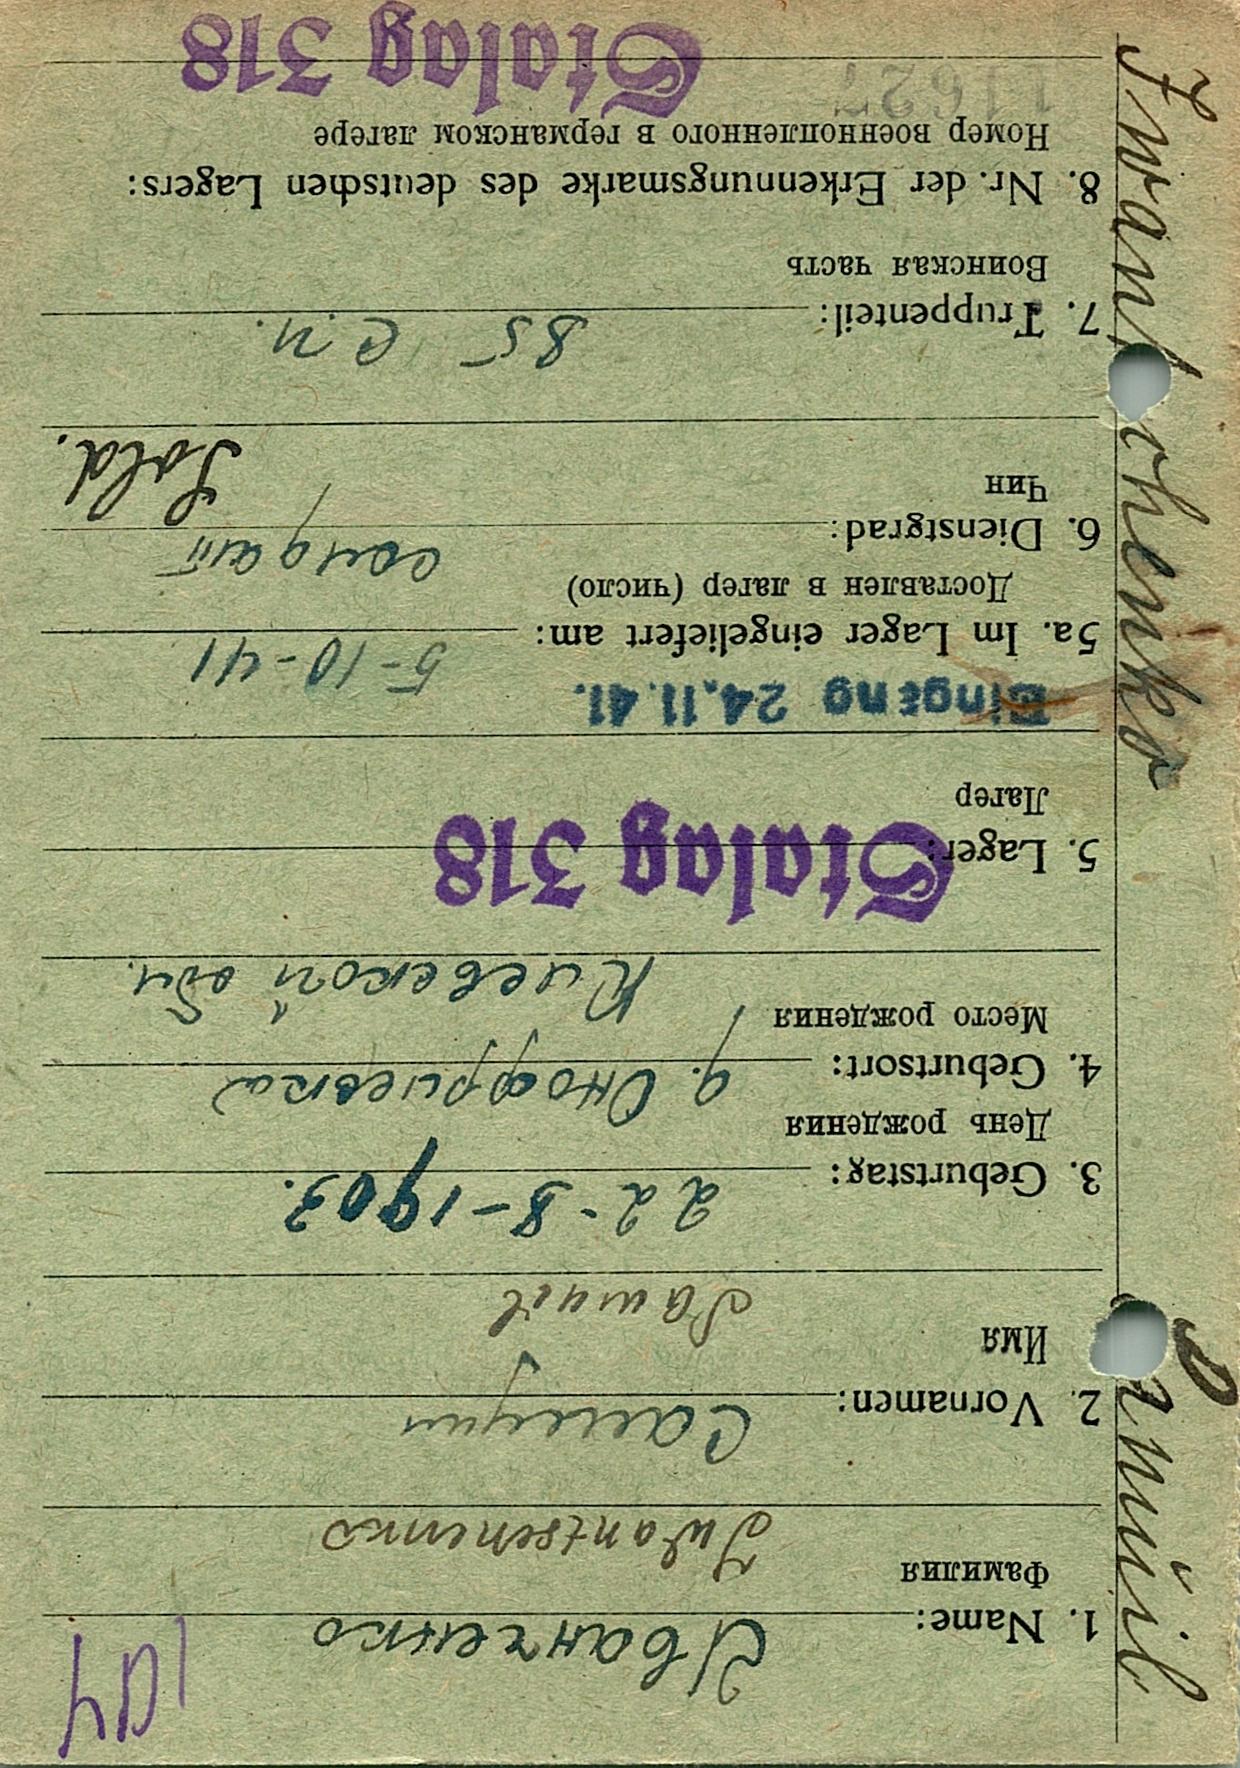 104
1. Name: Иванченко
Фамилия
Iwantschenko
2. Vornamen: Самуил
Имя
Samuil
3. Geburtstag: 22-8-1903.
День рождения
4. Geburtsort: д. Онофриевка
Место рождения
Киевской обл.
5. Lager: Stalag 318
Лагер
Eingang 24.11.41.
5a. Im Lager eingeliefert am: 5-10-41
Доставлен в лагер (число)
6. Dienstgrad: солдат
Чин
Sold.
7. Truppenteil: 85 с.п.
Воинская часть
8. Nr. der Erkennungsmarke des deutschen Lagers:
Номер военнопленного в германском лагере
11627 Stalag 318